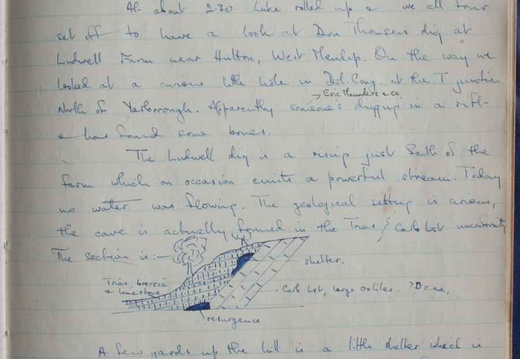 At about 2.30 Luke rolled up & we all four
set off to have a look at Don Thomsons dig at
Ludwell Farm near Hutton, West Mendip. On the way we
looked at a curious little hole in Dol. Cong. at the T junction
North of Yarborough. Apparently someone's digging in a rift
→ Eric Meanders & co.
& has found some bones.
The Ludwell dig is a rising just South of the
farm which on occasion emits a powerful stream. Today
no water was flowing. The geological setting is curious,
the cave is actually formed in the Trias / Carb Lst unconformity
The section is:-
shelter.
Trias, breccia
& limestone
Carb Lst, large oolites D zone.
resurgence
A few yards up the hill is a little shelter which is